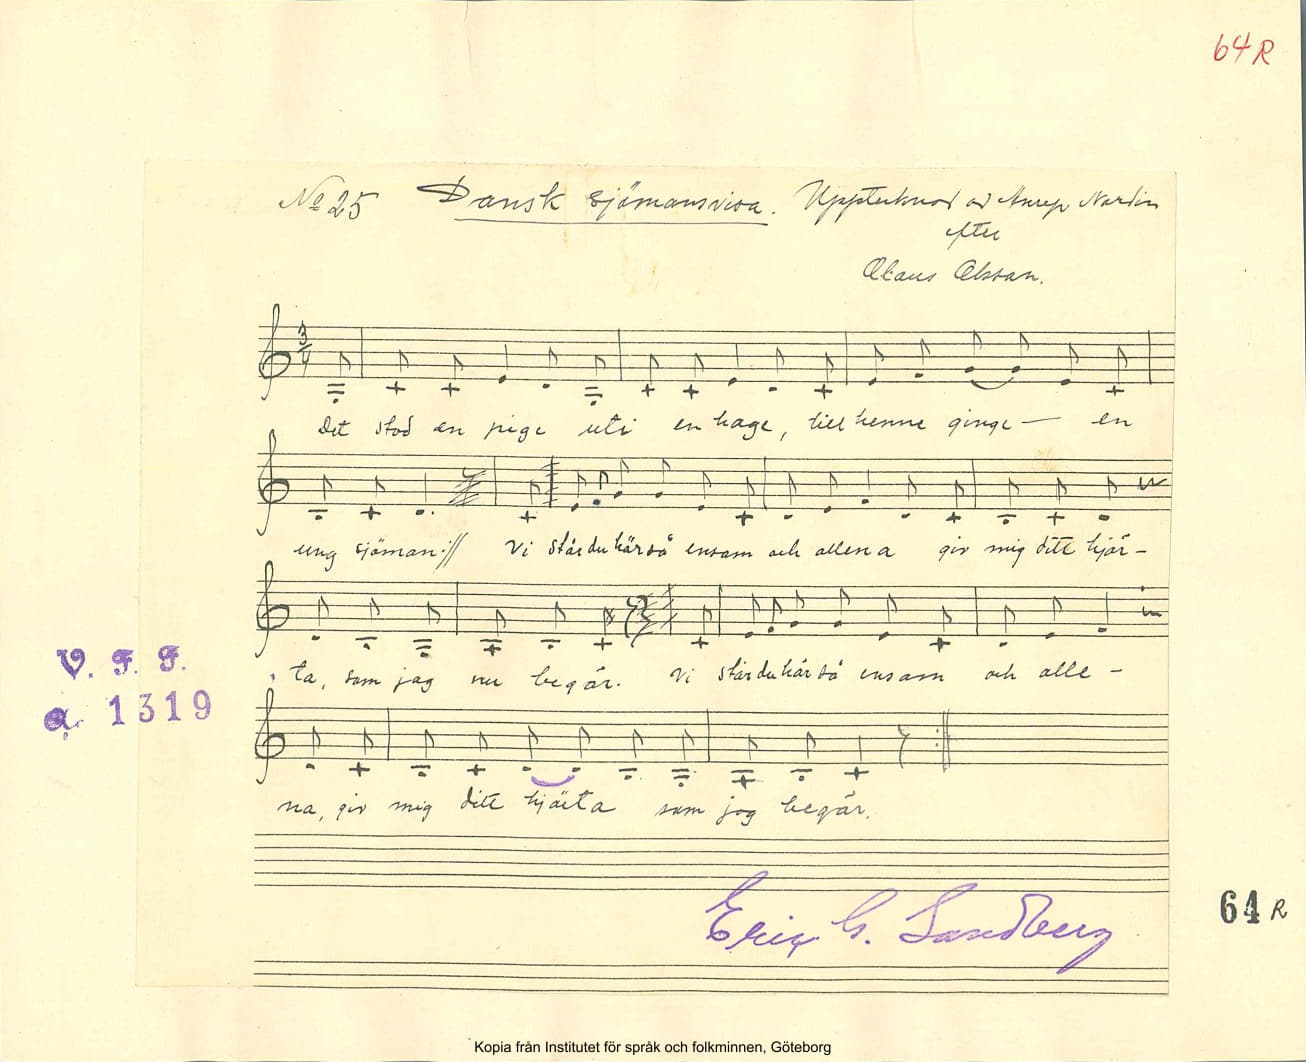 64 R
No 25 Dansk sjömansvisa. Upptecknad av Anrep Nordin
efter
Olaus Olsson.
3/4
Det stod en pige uti en hage, till henne ginge — en
ung sjöman :// Vi står du här så ensam och allena giv mig ditt hjär-
ta, som jag nu begär. Vi står du här så ensam och alle-
V. F. F.
a. 1319
na, giv mig ditt hjärta som jag begär.
Eric G. Sandberg
64 R
Kopia från Institutet för språk och folkminnen, Göteborg